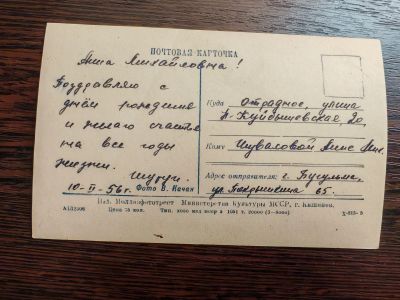 ПОЧТОВАЯ КАРТОЧКА
Анна Михайловна!
Поздравляю с
днём рождения
и желаю счастья
на все годы
жизни.
10-II-56г. Фото В. Качан
Куда Отрадное, улица
Куйбышевская, 20,
Кому Чуваловой Анне Мих.
Адрес отправителя: г. Бугульма,
ул. Покрышкина 65.
Изд. Молдфототрест Министерства Культуры МССР, г. Кишинев.
Цена 75 коп.